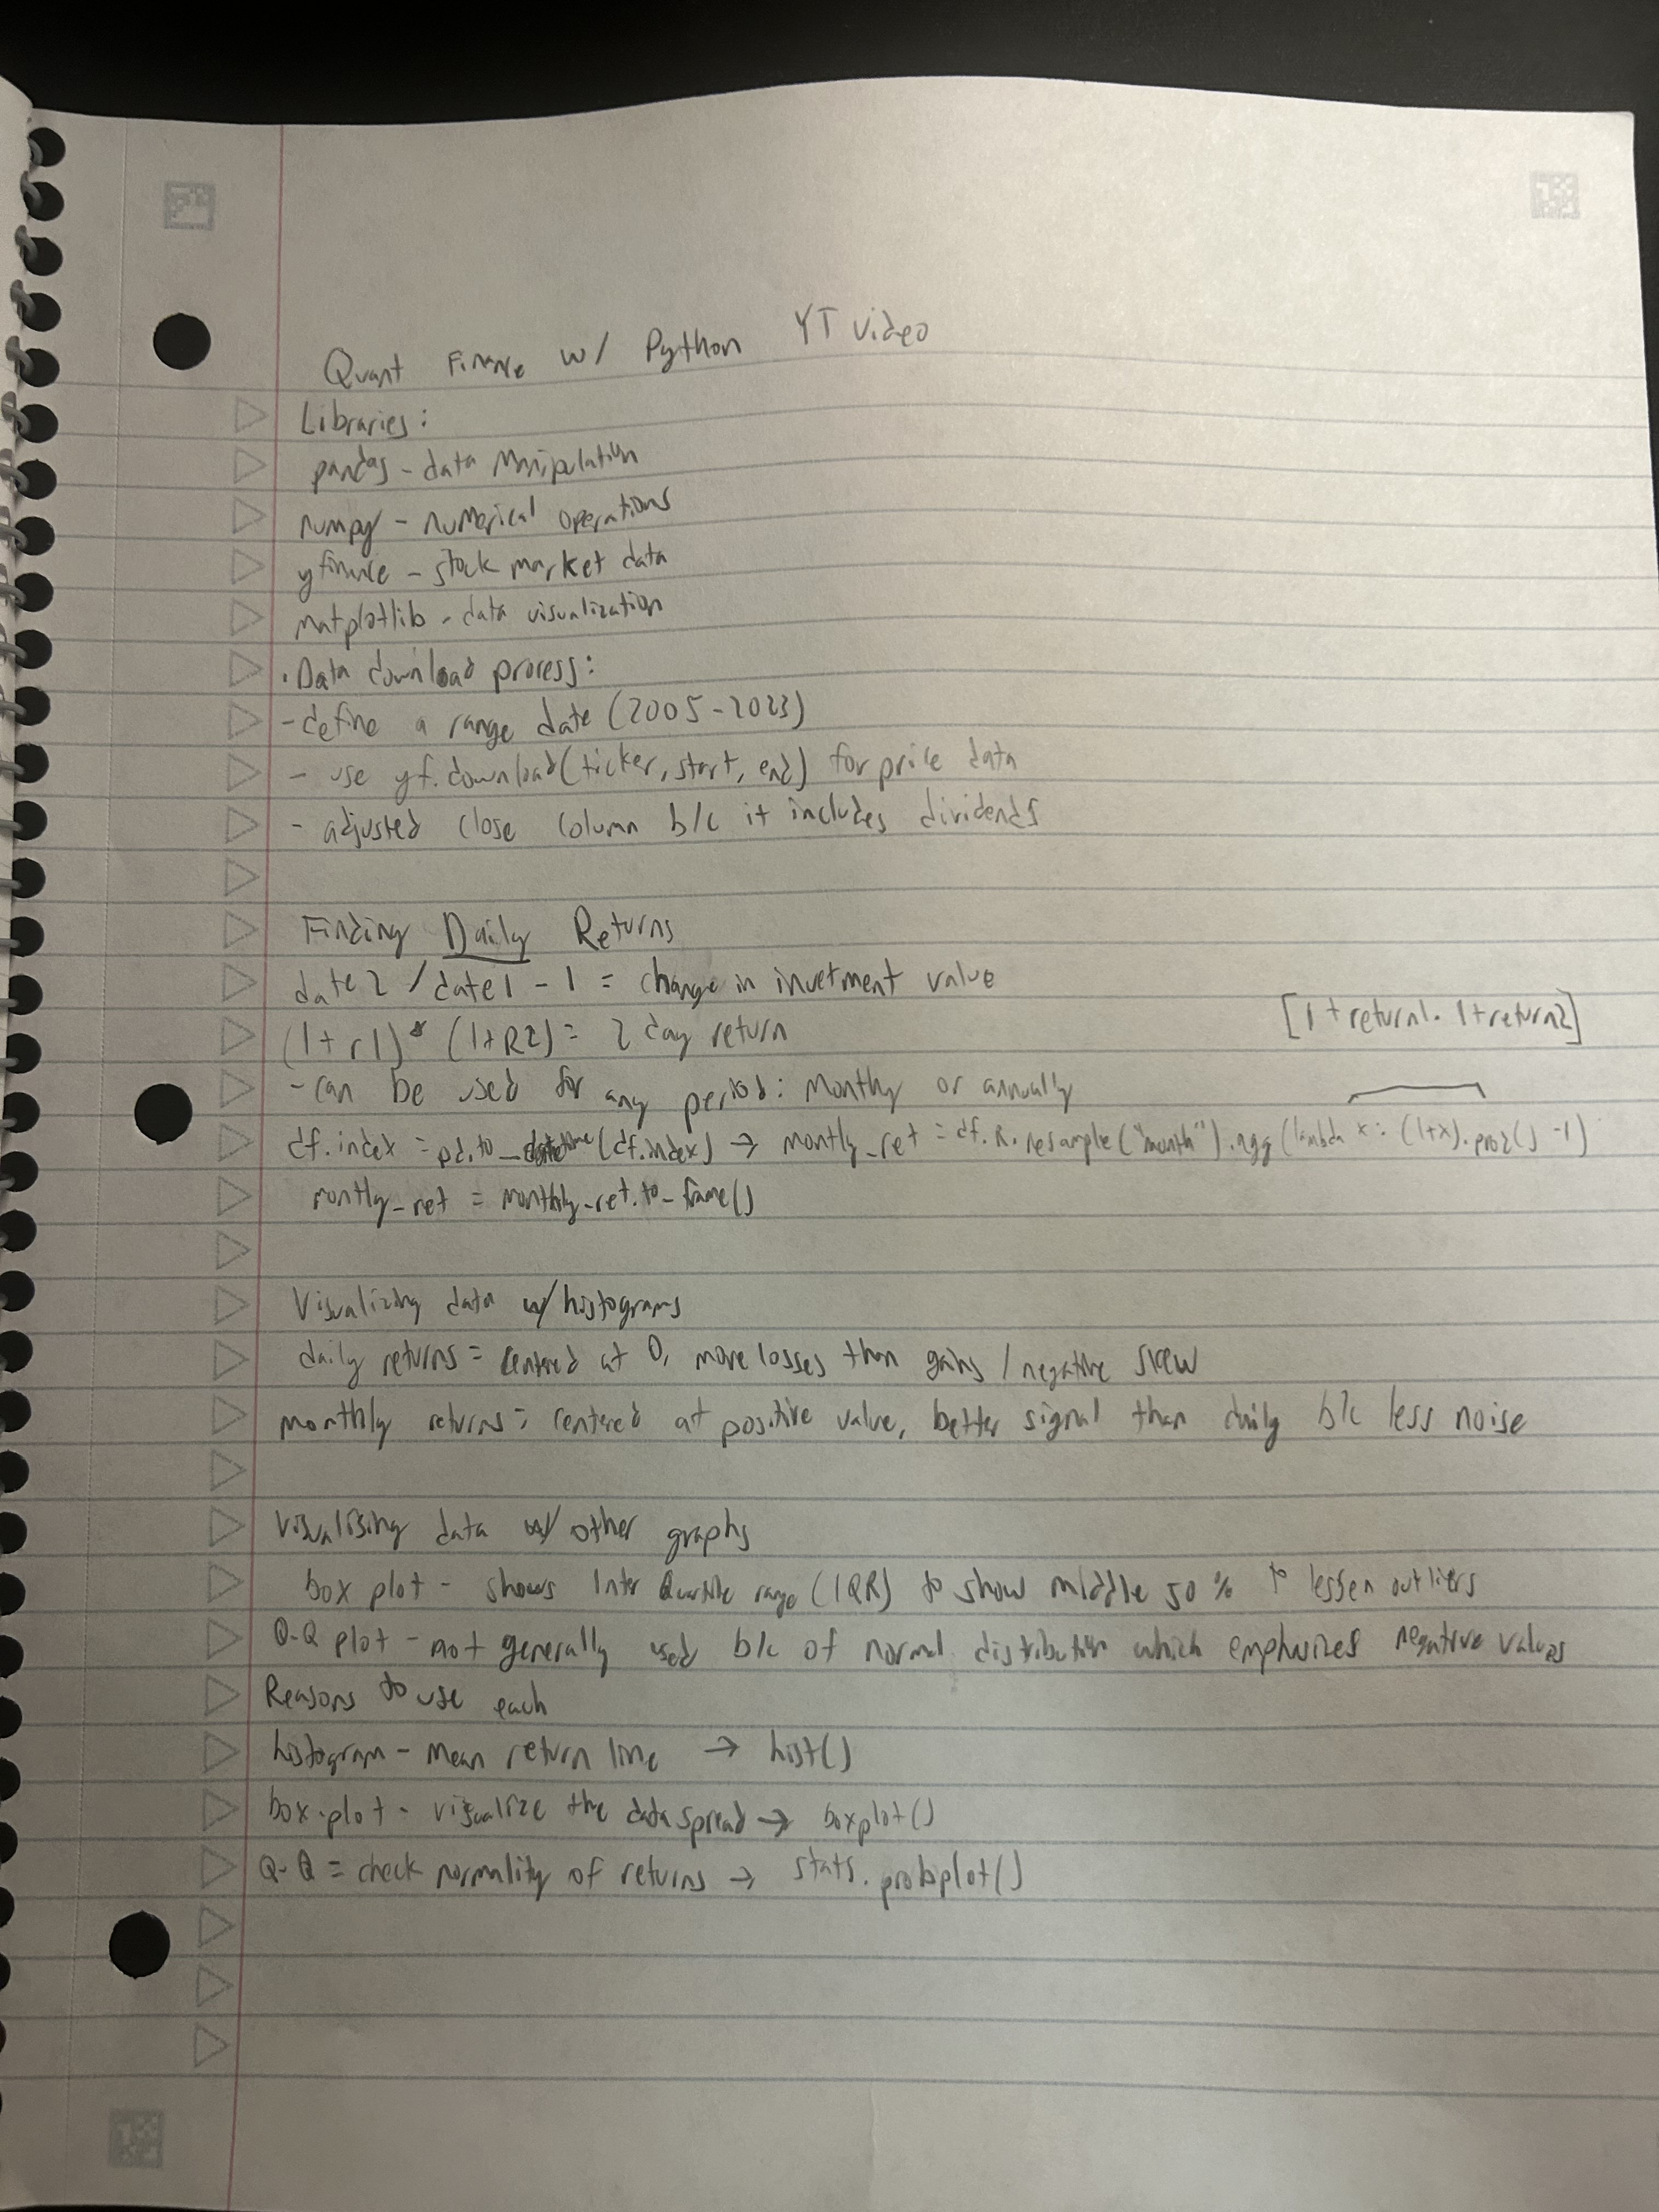 Quant Finance w/ Python YT Video
Libraries:
pandas - data Manipulation
numpy - numerical operations
yfinance - stock market data
matplotlib - data visualization
· Data download process:
- define a range date (2005-2023)
- use yf.download(ticker, start, end) for price data
- adjusted close column b/c it includes dividends
Finding Daily Returns
date2 / date1 - 1 = change in invetment value
[1+return1 · 1+return2]
(1+r1) * (1+R2) = 2 day return
- can be used for any period: Monthly or annually
df.index = pd.to_datetime(df.index) → montly_ret = df.R.resample("month").agg(lambda x: (1+x).prod() -1)
montly_ret = monthly_ret.to_frame()
Visualizing data w/ histograms
daily returns = centered at 0, more losses than gains / negative skew
monthly returns = centered at positive value, better signal than daily b/c less noise
Visualizing data w/ other graphs
box plot - shows Inter Quartile range (IQR) to show middle 50% to lessen outliers
Q-Q plot - not generally used b/c of normal distribution which emphasizes negative values
Reasons to use each
histogram - mean return line → hist()
box-plot - visualize the data spread → boxplot()
Q-Q = check normality of returns → stats.probplot()